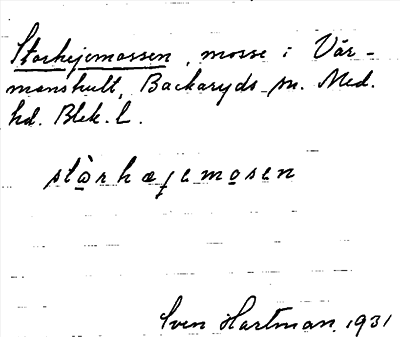 Storhejemossen, mosse i Vär-
manshult, Backaryds sn. Med.
hd. Blek. l.
stòrhæjemosen
Sven Hartman, 1931